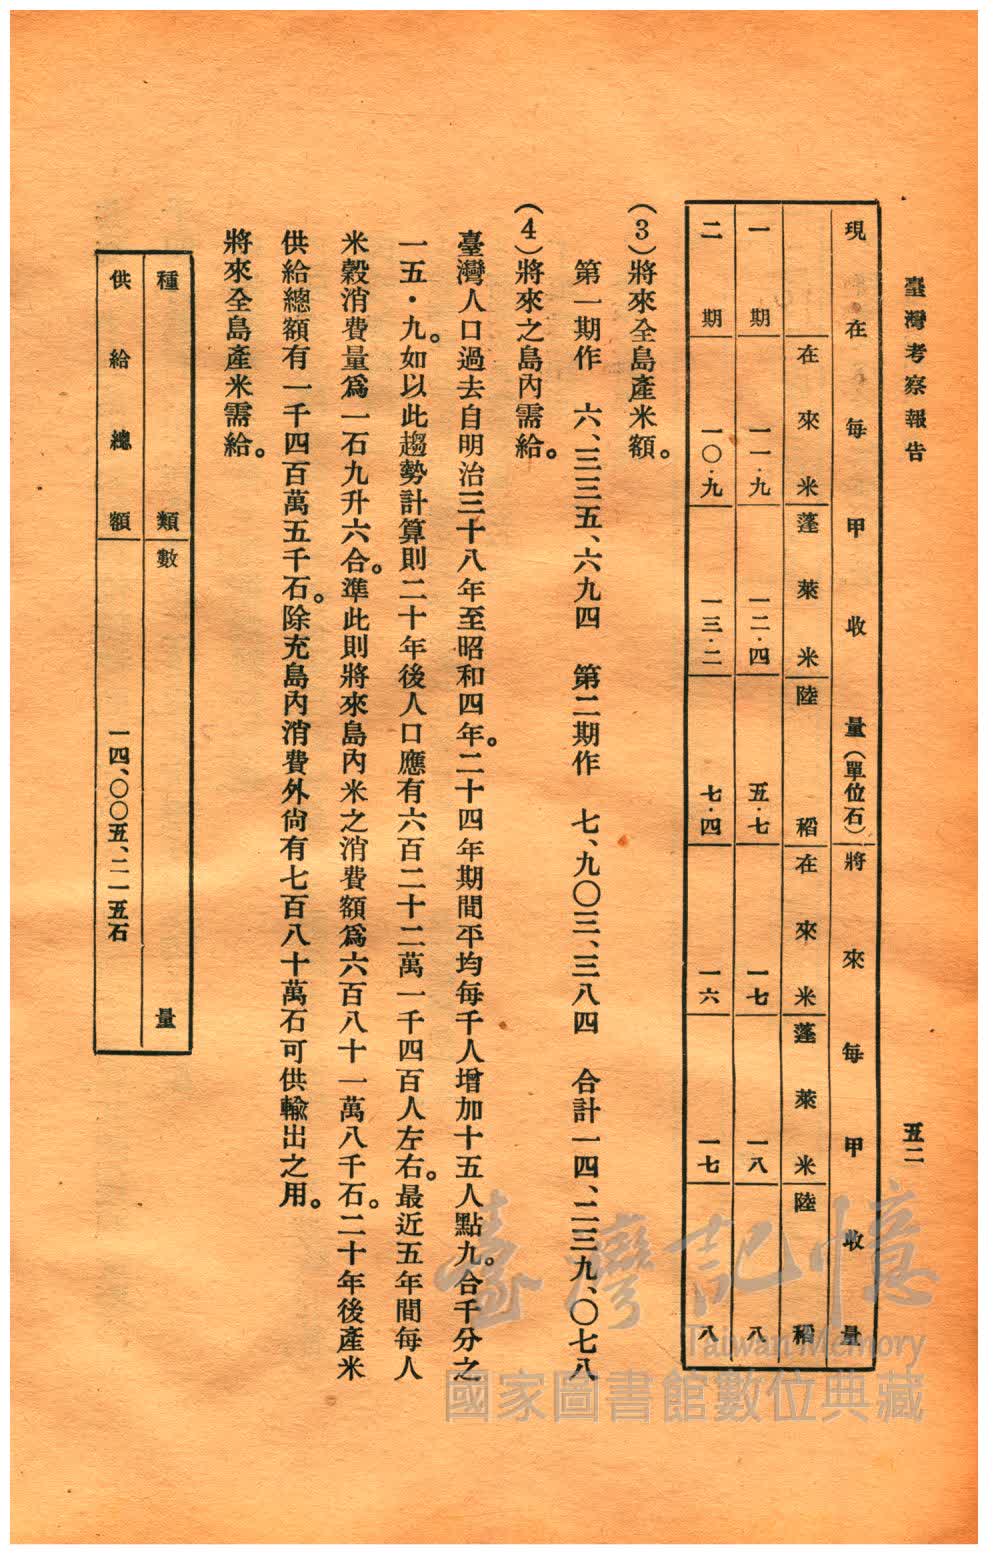 臺灣考察報告
五二
現在每甲收量(單位石)
將來每甲收量
在來米
蓬萊米
陸稻
在來米
蓬萊米
陸稻
一期
一一·九
一二·四
五·七
一七
一八
八
二期
一〇·九
一三·二
七·四
一六
一七
八
(3)將來全島產米額。
第一期作 六、三三五、六九四 第二期作 七、九〇三、三八四 合計一四、二三九、〇七八
(4)將來之島內需給。
臺灣人口過去自明治三十八年至昭和四年。二十四年期間平均每千人增加十五人點九。合千分之
一五·九。如以此趨勢計算則二十年後人口應有六百二十二萬一千四百人左右。最近五年間每人
米穀消費量爲一石九升六合。準此則將來島內米之消費額爲六百八十一萬八千石。二十年後產米
供給總額有一千四百萬五千石。除充島內消費外尙有七百八十萬石可供輸出之用。
將來全島產米需給。
種類
數量
供給總額
一四、〇〇五、二一五石
臺灣記憶
Taiwan Memory
國家圖書館數位典藏